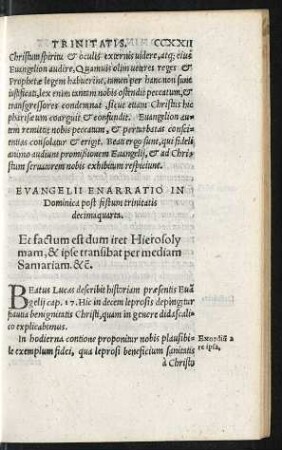 TRINITATIS. CCXXII
Christum spiritu & oculis externis videre, atq; eius
Euangelion audire. Quamuis olim veteres reges &
Prophetæ legem habuerint, tamen per hanc non sunt
iustificati, lex enim tantum nobis ostendit peccatum, &
transgressores condemnat, sicut etiam Christus hic
pharisæum coarguit & confundit. Euangelion au
tem remittit nobis peccatum, & perturbatas conscien
tias consolatur & erigit. Beati ergo sunt, qui fideli
animo audiunt promissionem Euangelij, & ad Chri
stum seruatorem nobis exhibitum respiciunt.
EVANGELII ENARRATIO IN
Dominica post festum trinitatis
decimaquarta.
Et factum est dum iret Hierosoly
mam, & ipse transibat per mediam
Samariam. &c̃.
BEATUS Lucas describit historiam præsentis Euā
gelij cap. 17. Hic in decem leprosis depingitur
summa benignitatis Christi, quam in genere didascali
co explicabimus.
In hodierna contione proponitur nobis plausibi-
le exemplum fidei, qua leprosi beneficium sanitatis
à Christo
Exordiū a
re ipsa,